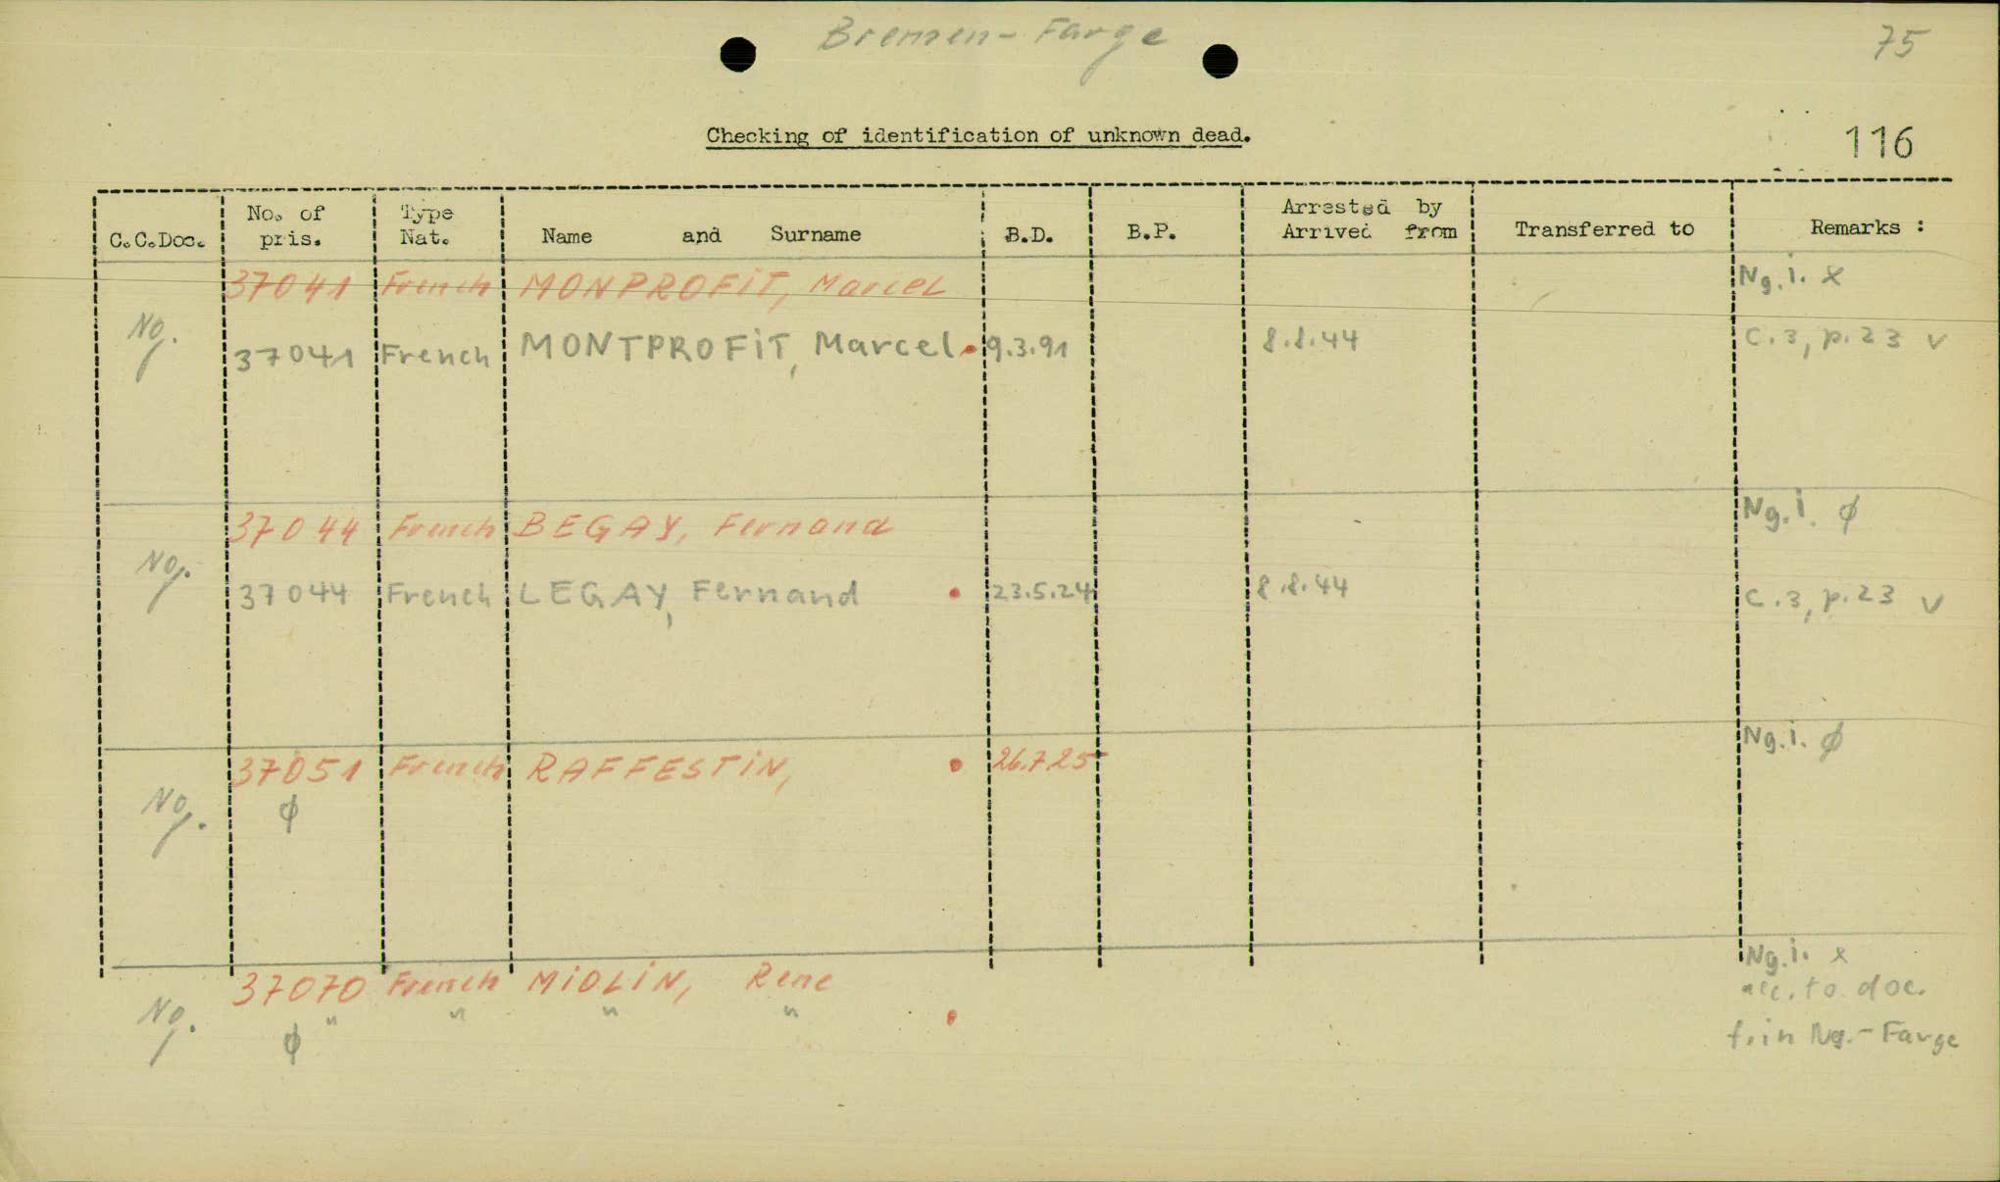 Bremen-Farge
75
Checking of identification of unknown dead.
116
C.C.Doc. No. of pris. Type Nat. Name and Surname B.D. B.P. Arrested by Arrived from Transferred to Remarks :
37041 French MONPROFiT, Marcel Ng.i. x
Ng. 37041 French MONTPROFiT, Marcel 9.3.91 8.8.44 C.3, p.23 v
37044 French BEGAY, Fernand Ng.i. ø
Ng. 37044 French LEGAY, Fernand 23.5.24 8.8.44 C.3, p.23 v
37051 French RAFFESTiN, 26.7.25 Ng.i. ø
Ng. ø
37070 French MiOLiN, Rene Ng.i. x
Ng. " " " " acc. to doc.
ø f.in Ng.-Farge